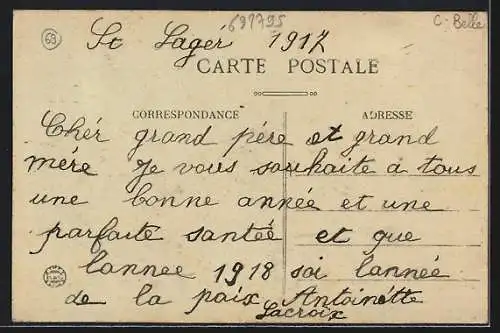 69
691795
C-Belle
St Lager 1917
CARTE POSTALE
CORRESPONDANCE
ADRESSE
Chér grand pére et grand
mére Je vous souhaite a tous
une bonne année et une
parfaite santée et que
lannee 1918 soi lannée
de la paix Antoinétte
Lacroix